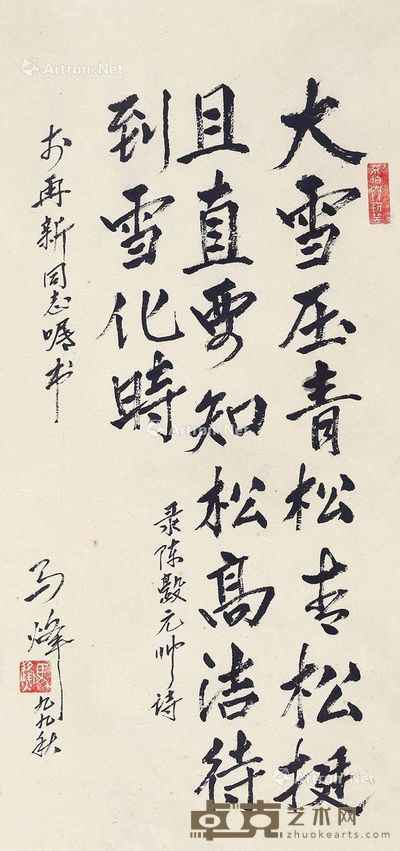 大雪压青松青松挺
且直要知松高洁待
到雪化時
录陈毅元帅诗
於再新同志嘱书
马烽
九九秋
Artron.Net
Artron.Net
Artron.Net
Artron.Net
卓克艺术网
zhuokearts.com